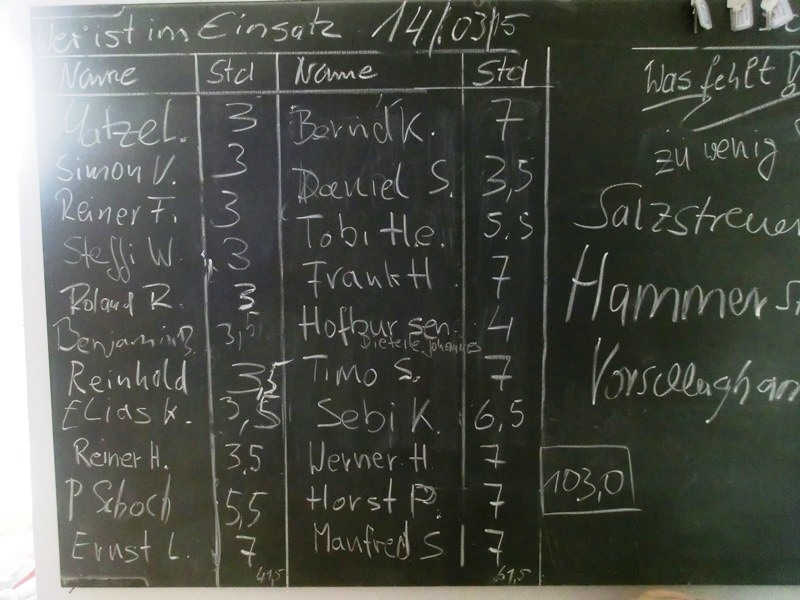 Wer ist im Einsatz 14/.03/15
Name Std Name Std
Matze L. 3 Bernd K. 7
Simon V. 3 Daniel S. 3,5
Reiner F. 3 Tobi He. 5.5
Steffi W. 3 Frank H 7
Roland R. 3 Hofbur sen. 4
Dieterle Johannes
Benjamin B. 3,5 Timo S. 7
Reinhold 3,5 Sebi K. 6,5
Elias K. 3,5 Werner H 7
Reiner H. 3,5 Horst P. 7
P Schoch 5,5 Manfred S 7
Ernst L. 7
41,5 61,5
103,0
Was fehlt
zu wenig
Salzstreuer
Hammer
Vorschlagham